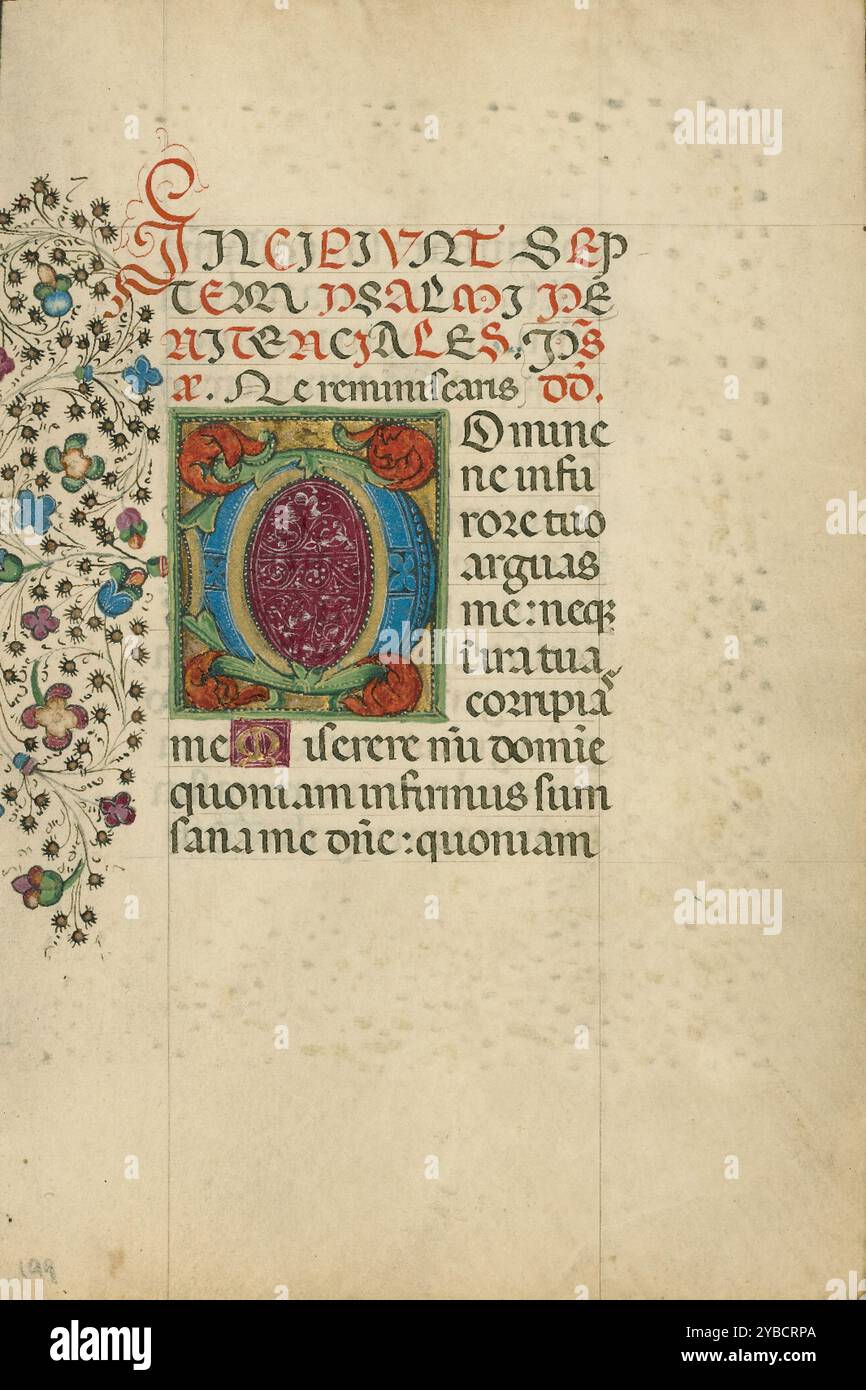 INCIPIVNT SEP
TEM PSALMI PE
NITENCIALES. Ps
Ne reminiscaris dd̄.
Domine
ne in fu
rore tuo
arguas
me: neqꝫ
in ira tua
corripias
me Miserere mi domīe
quoniam infirmus sum
sana me dn̄e: quoniam
199
alamy
Image ID: 2YBCRPA
www.alamy.com